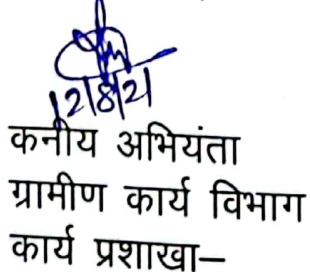 12|8|21
कनीय अभियंता
ग्रामीण कार्य विभाग
कार्य प्रशाखा–